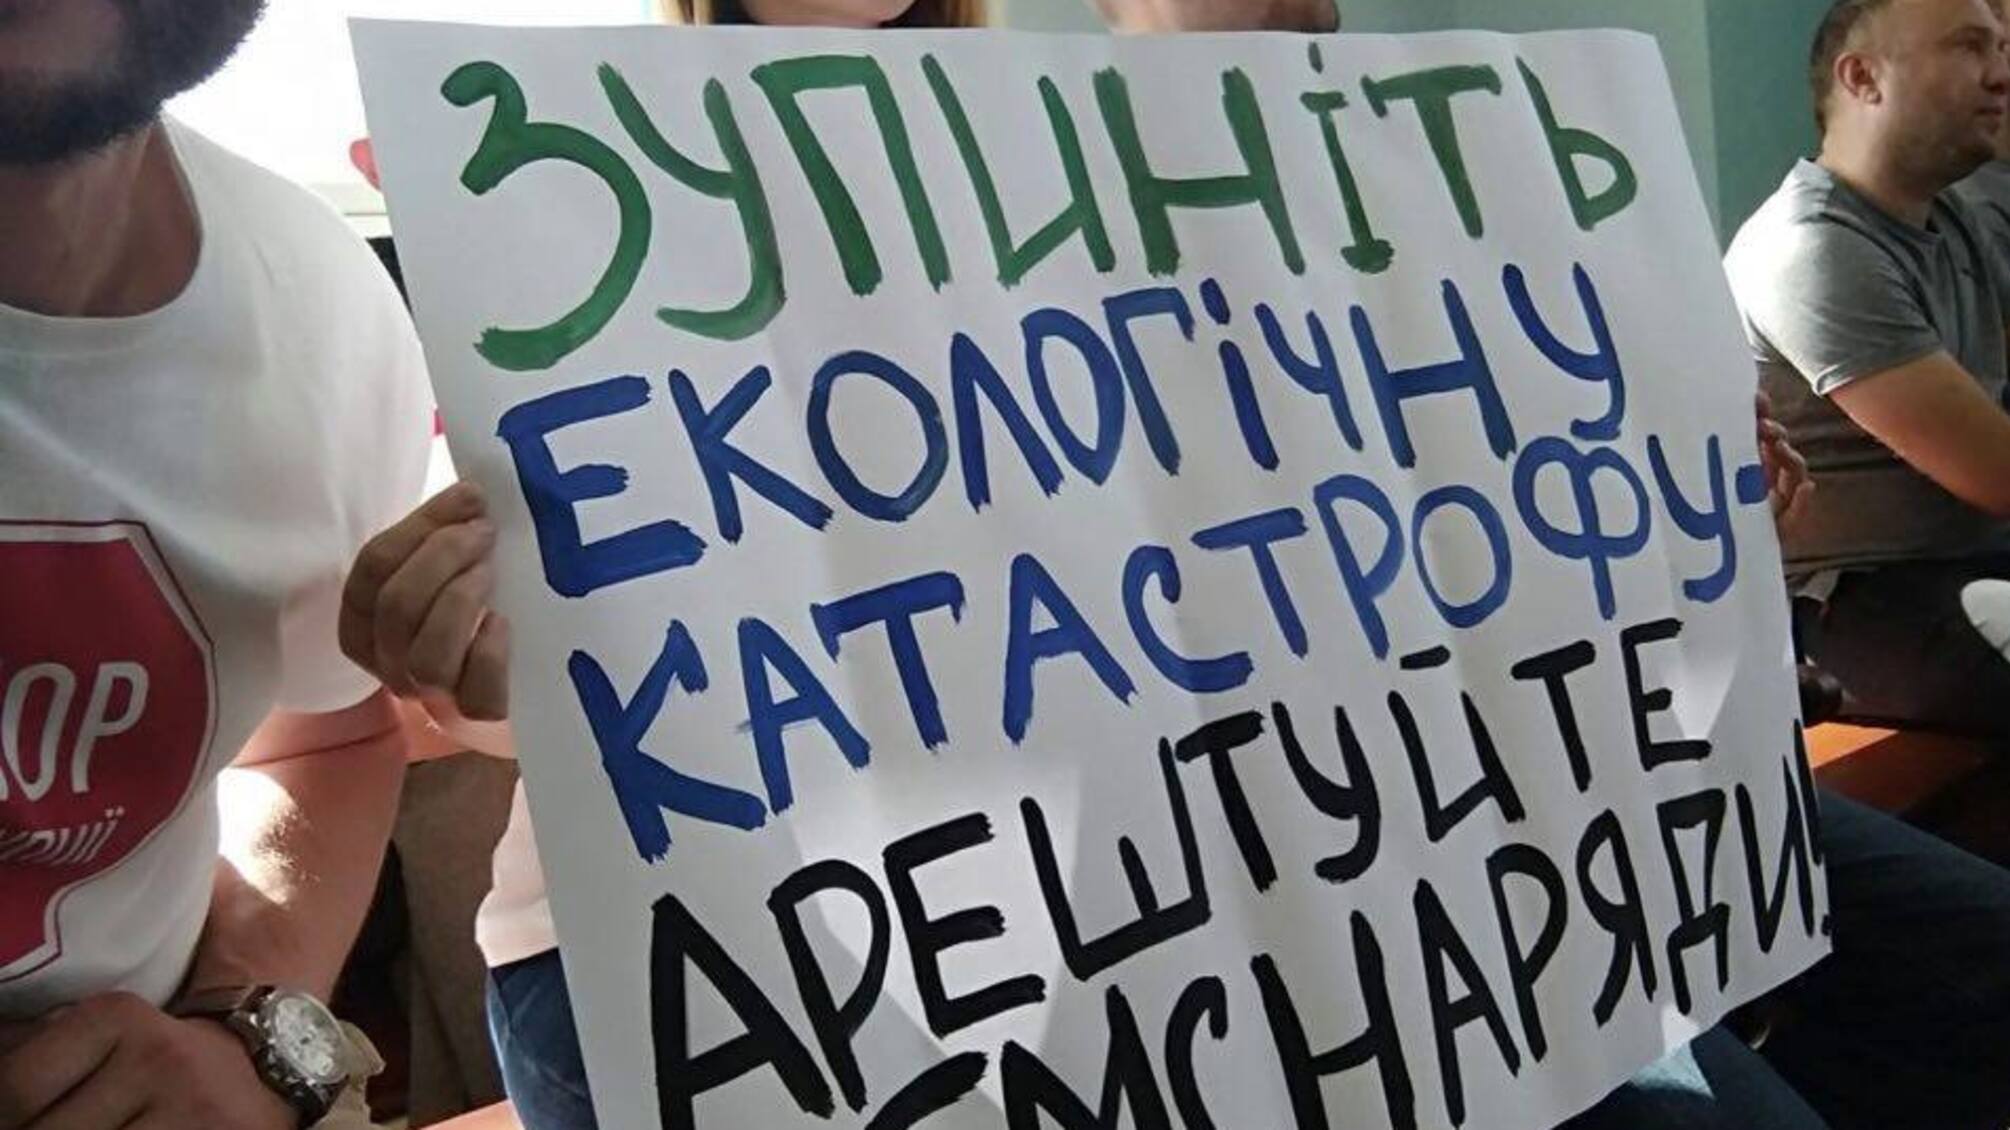 ЗУПИНІТЬ
ЕКОЛОГІЧНУ
КАТАСТРОФУ-
АРЕШТУЙТЕ
ЗЕМСНАРЯДИ!